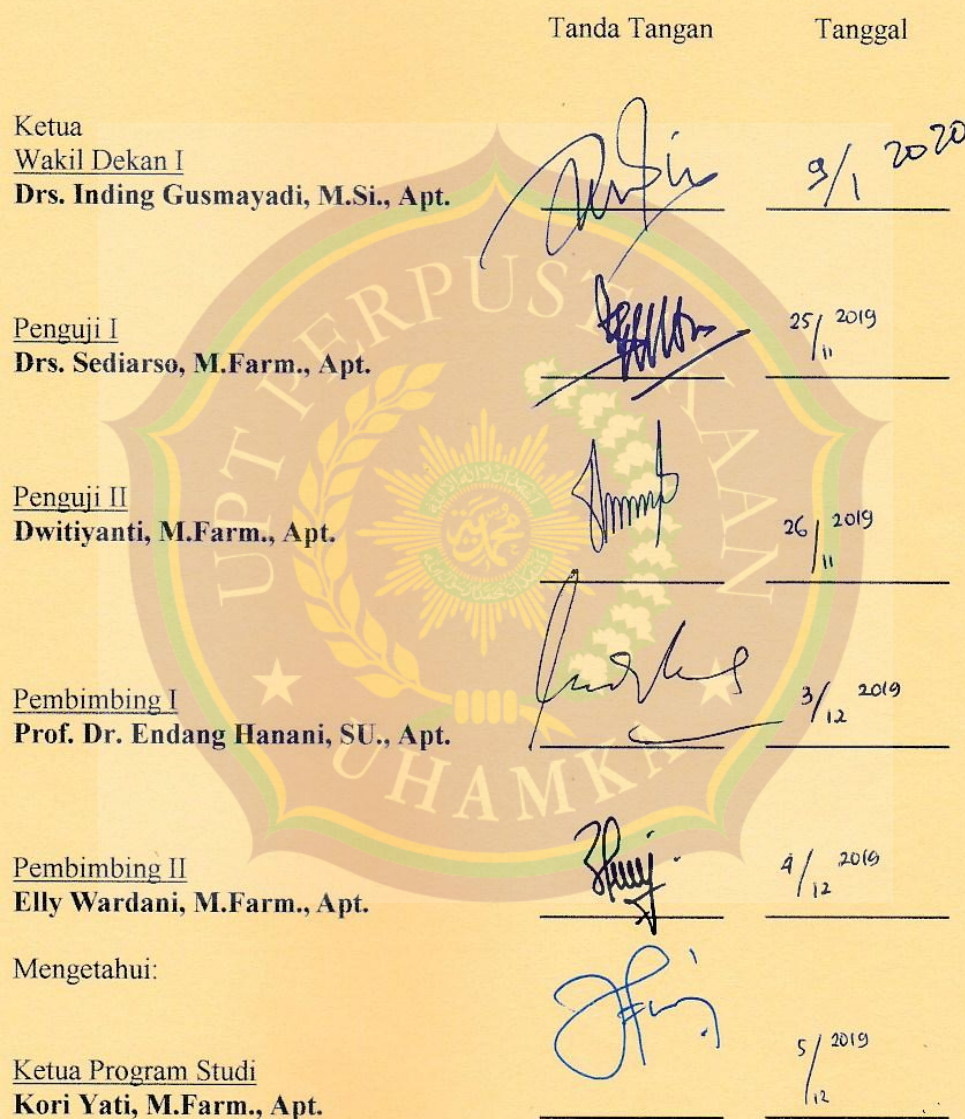 Tanda Tangan Tanggal
Ketua
Wakil Dekan I
Drs. Inding Gusmayadi, M.Si., Apt. 9/1 2020
Penguji I
Drs. Sediarso, M.Farm., Apt. 25/11 2019
Penguji II
Dwitiyanti, M.Farm., Apt. 26/11 2019
Pembimbing I
Prof. Dr. Endang Hanani, SU., Apt. 3/12 2019
Pembimbing II
Elly Wardani, M.Farm., Apt. 4/12 2019
Mengetahui:
Ketua Program Studi
Kori Yati, M.Farm., Apt. 5/12 2019
UPT PERPUSTAKAAN
UHAMKA